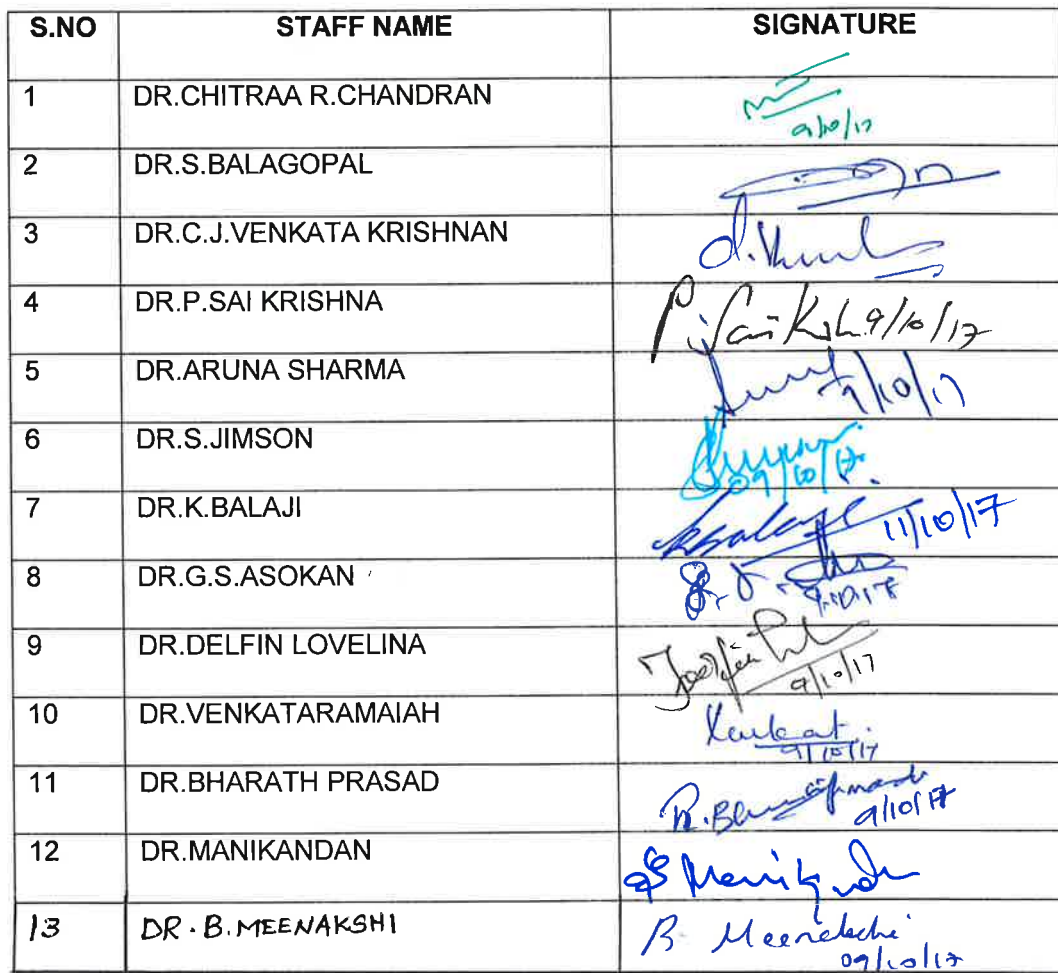 S.NO STAFF NAME SIGNATURE
1 DR.CHITRAA R.CHANDRAN
9/10/17
2 DR.S.BALAGOPAL
3 DR.C.J.VENKATA KRISHNAN
4 DR.P.SAI KRISHNA P. Sai Krish 9/10/17
5 DR.ARUNA SHARMA 9/10/17
6 DR.S.JIMSON
09/10/17.
7 DR.K.BALAJI kbalaji 11/10/17
8 DR.G.S.ASOKAN
9.10.17
9 DR.DELFIN LOVELINA
9/10/17
10 DR.VENKATARAMAIAH Venkat.
9/10/17
11 DR.BHARATH PRASAD
9/10/17
12 DR.MANIKANDAN
13 DR. B. MEENAKSHI B. Meenakshi
09/10/17